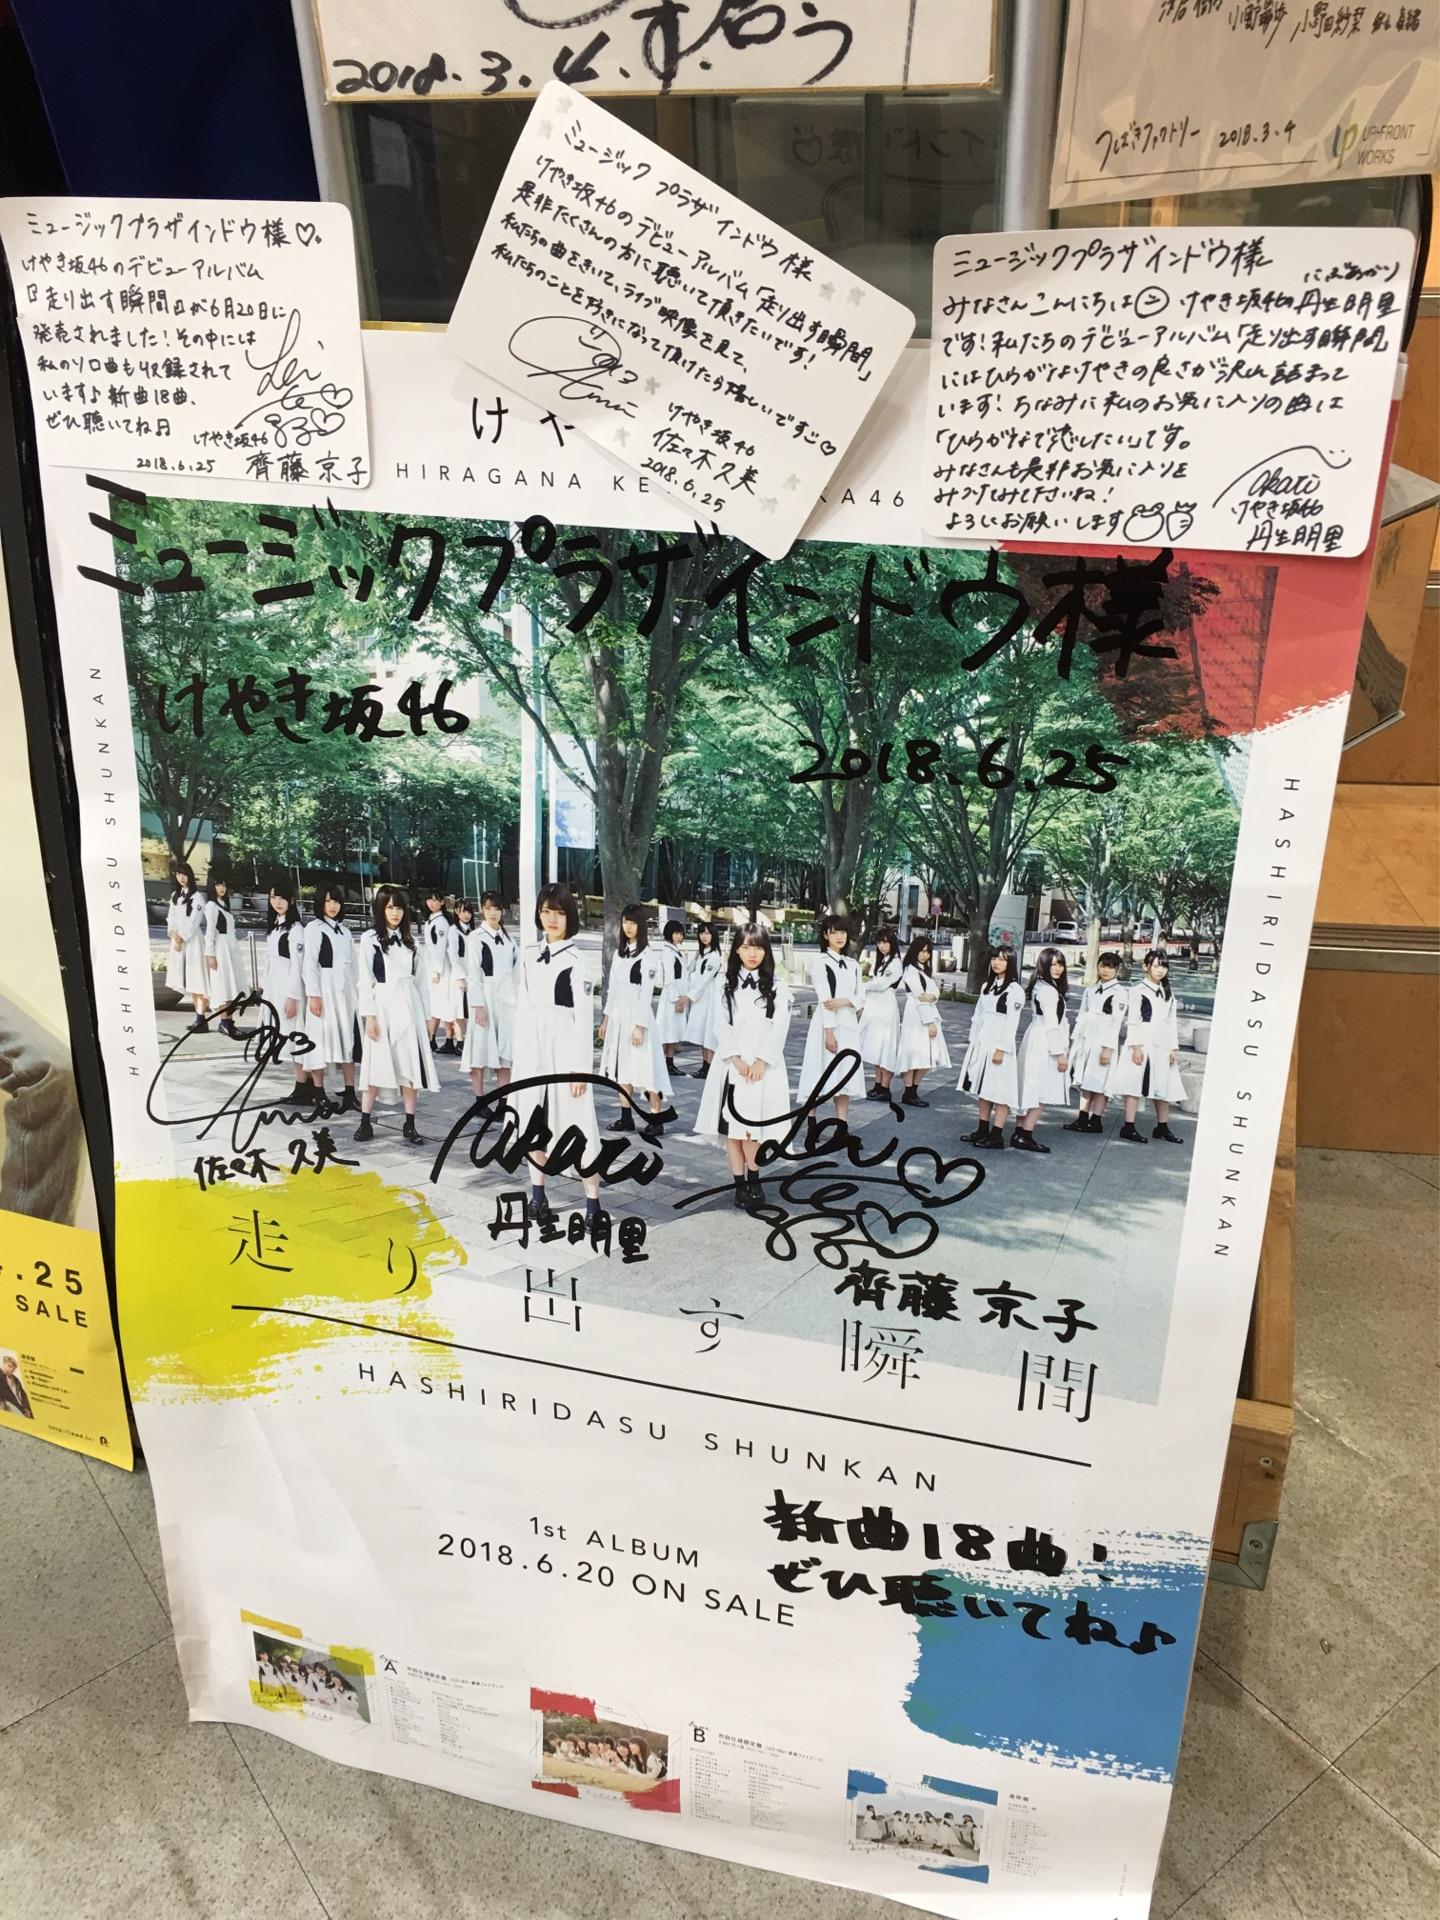 2018.3.4.
つばきファクトリー 2018.3.4
UP-FRONT
WORKS
ミュージックプラザインドウ様♡
けやき坂46のデビューアルバム
『走り出す瞬間』が6月20日に
発売されました!その中には
私のソロ曲も収録されて
います♪新曲18曲、
ぜひ聴いてね♬
けやき坂46
2018.6.25 齊藤 京子
ミュージック プラザ インドウ 様
けやき坂46のデビューアルバム「走り出す瞬間」
是非たくさんの方に聴いて頂きたいです!
私たちの曲をきいて、ライブ映像を見て、
私たちのことを好きになって頂けたら嬉しいですご♡
けやき坂46
佐々木久美
2018.6.25
ミュージックプラザインドウ様
にぶあかり
みなさんこんにちは けやき坂46の丹生明里
です!私たちのデビューアルバム「走り出す瞬間」
にはひらがなけやきの良さが沢山詰まって
います!ちなみに私のお気に入りの曲は
「ひらがなで恋したい」です。
みなさんも是非お気に入りを
みつけてみてくださいね!
よろしくお願いします
akari
けやき坂46
丹生明里
けや
HIRAGANA KE
KA46
ミュージックプラザインドウ様
けやき坂46
2018.6.25
HASHIRIDASU SHUNKAN
HASHIRIDASU SHUNKAN HASHIRIDASU SHUNKAN
佐々木 久美
Akari
丹生明里
齊藤 京子
走り出す瞬間
HASHIRIDASU SHUNKAN
1st ALBUM
2018.6.20 ON SALE
新曲18曲!
ぜひ聴いてね♪
A
B
通常盤
.25
SALE